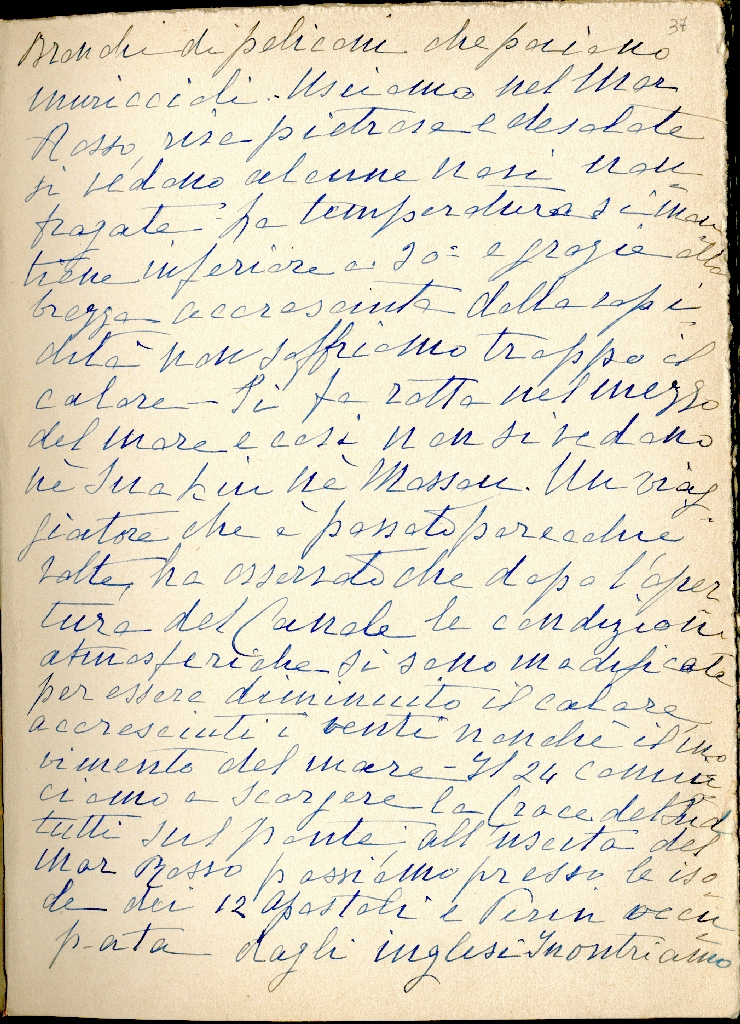 37
Branchi di pelicani che paiono
muriccioli. Usciamo nel Mar
Rosso, rive pietrose e desolate
si vedono alcune navi nau=
fragate - La temperatura si man=
tiene inferiore a 30° e grazie alla
brezza accresciuta dalla rapi
dità non soffriamo troppo il
calore - Si fa rotta nel mezzo
del mare e così non si vedono
nè Suakin nè Massau. Un viag=
giatore che è passato parecchie
volte, ha osservato che dopo l'aper
tura del Canale le condizioni
atmosferiche si sono modificate
per essere diminuito il calore
accresciuti i venti nonchè il mo
vimento del mare - Il 24 comin
ciamo a scorgere la Croce del Sud
tutti sul ponte, all'uscita del
Mar Rosso passiamo presso le iso=
le dei 12 Apostoli e Perin occu=
pata dagli inglesi Incontriamo